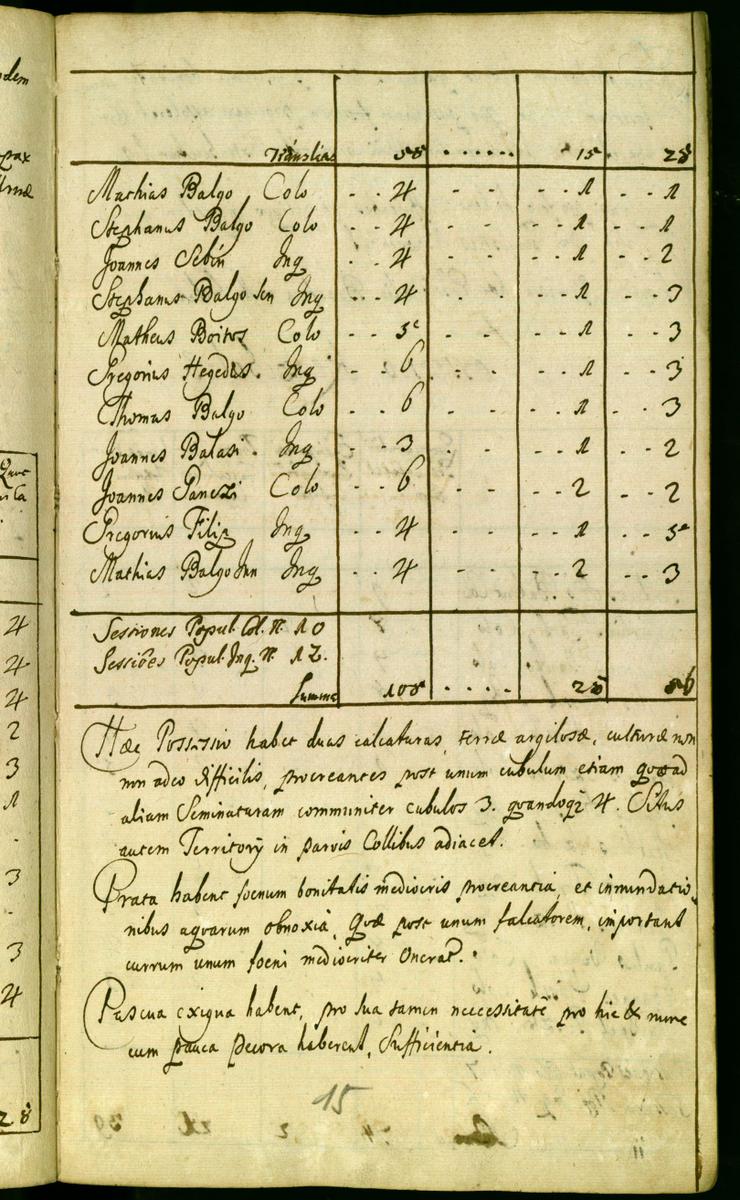 Translias 58 . . . . . . 15 28
Mathias Balgo Colo - - 4 - - - - 1 - - 1
Stephanus Balgo Colo - - 4 - - - - 1 - - 1
Joannes Sebin Inq - - 4 - - - - 1 - - 2
Stephanus Balgo Sen Inq - - 4 - - - - 1 - - 3
Matheus Boitos Colo - - 5 - - - - 1 - - 3
Gregorius Hegedus. Inq - - 6 - - - - 1 - - 3
Thomas Balgo Colo - - 6 - - - - 1 - - 3
Joannes Balasi. Inq - - 3 - - - - 1 - - 2
Joannes Panczi Colo - - 6 - - - - 2 - - 2
Gregorius Filip Inq - - 4 - - - - 1 - - 5
Mathias Balgo Jun Inq - - 4 - - - - 2 - - 3
Sessiones Popul. Col. N. 10
Sessiões Popul. Inq. N. 12.
Summa 108 . . . . 28 56
Hæc Possessio habet duas calcaturas, terræ argilosæ, culturæ non
non adeo difficilis, procreantes post unum cubulum etiam quoad
aliam Seminaturam communiter cubulos 3. quandoqz 4. Situs
autem Territorÿ in parvis Collibus adiacet.
Prata habent foenum bonitatis mediocris procreantia, et inundatio-
nibus aquarum obnoxia, Quæ post unum falcatorem, important
currum unum foeni mediocriter Onerat.
Pascua exigua habent, pro sua tamen neccessitate pro hic & nunc
cum pauca pecora haberent, Sufficientia.
15
odem
4
4
4
2
3
1
3
3
4
28